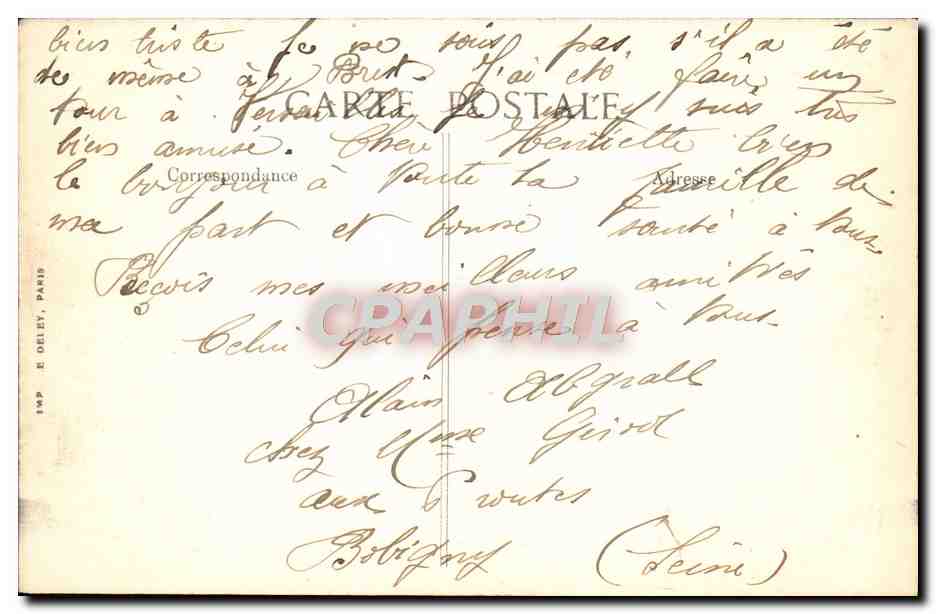 bien triste Je ne sais pas, s'il a été
de même à Brest. J'ai été faire un
tour à Versailles je m'y suis très
CARTE POSTALE
bien amusé. Chère Henriette bien
le bonjour à toute ta famille de
Correspondance Adresse
ma part et bonne santé à tous
Reçois mes meilleurs amitiés
CPAPHIL
Celui qui pense à tous
Alain Abgrall
chez Mme Girod
aux 6 routes
Bobigny (Seine)
IMP E DELEY, PARIS